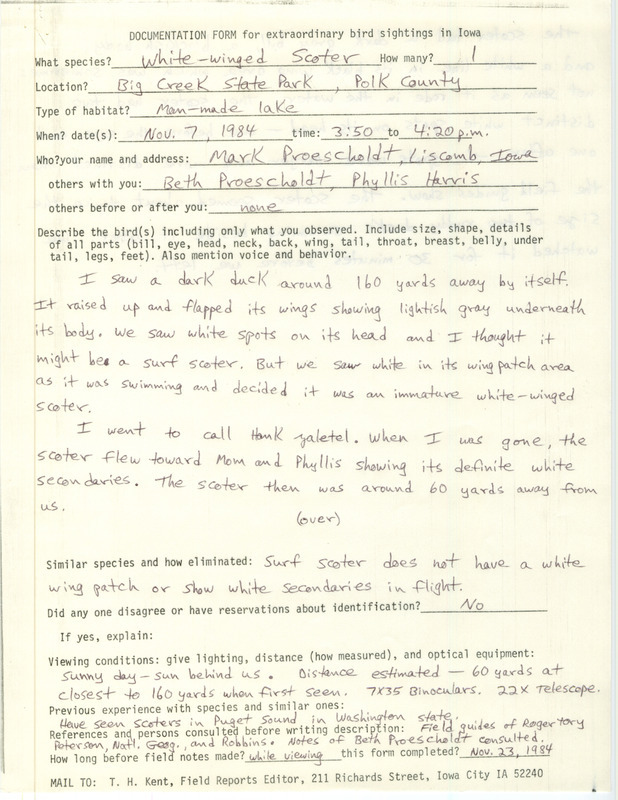 DOCUMENTATION FORM for extraordinary bird sightings in Iowa
What species? White-winged Scoter How many? 1
Location? Big Creek State Park, Polk County
Type of habitat? Man-made lake
When? date(s): Nov. 7, 1984 time: 3:50 to 4:20 p.m.
Who?your name and address: Mark Proescholdt, Liscomb, Iowa
others with you: Beth Proescholdt, Phyllis Harris
others before or after you: none
Describe the bird(s) including only what you observed. Include size, shape, details
of all parts (bill, eye, head, neck, back, wing, tail, throat, breast, belly, under
tail, legs, feet). Also mention voice and behavior.
I saw a dark duck around 160 yards away by itself.
It raised up and flapped its wings showing lightish gray underneath
its body. We saw white spots on its head and I thought it
might be a surf scoter. But we saw white in its wing patch area
as it was swimming and decided it was an immature white-winged
scoter.
I went to call Hank Yaletel. When I was gone, the
scoter flew toward Mom and Phyllis showing its definite white
secondaries. The scoter then was around 60 yards away from
us.
(over)
Similar species and how eliminated: Surf scoter does not have a white
wing patch or show white secondaries in flight.
Did any one disagree or have reservations about identification? No
If yes, explain:
Viewing conditions: give lighting, distance (how measured), and optical equipment:
Sunny day - sun behind us. Distance estimated - 60 yards at
closest to 160 yards when first seen. 7X35 Binoculars. 22X Telescope.
Previous experience with species and similar ones:
Have seen scoters in Puget Sound in Washington state.
References and persons consulted before writing description: Field guides of Roger Tory
Peterson, Natl. Geog., and Robbins. Notes of Beth Proescholdt consulted.
How long before field notes made? while viewing this form completed? Nov. 23, 1984
MAIL TO: T. H. Kent, Field Reports Editor, 211 Richards Street, Iowa City IA 52240